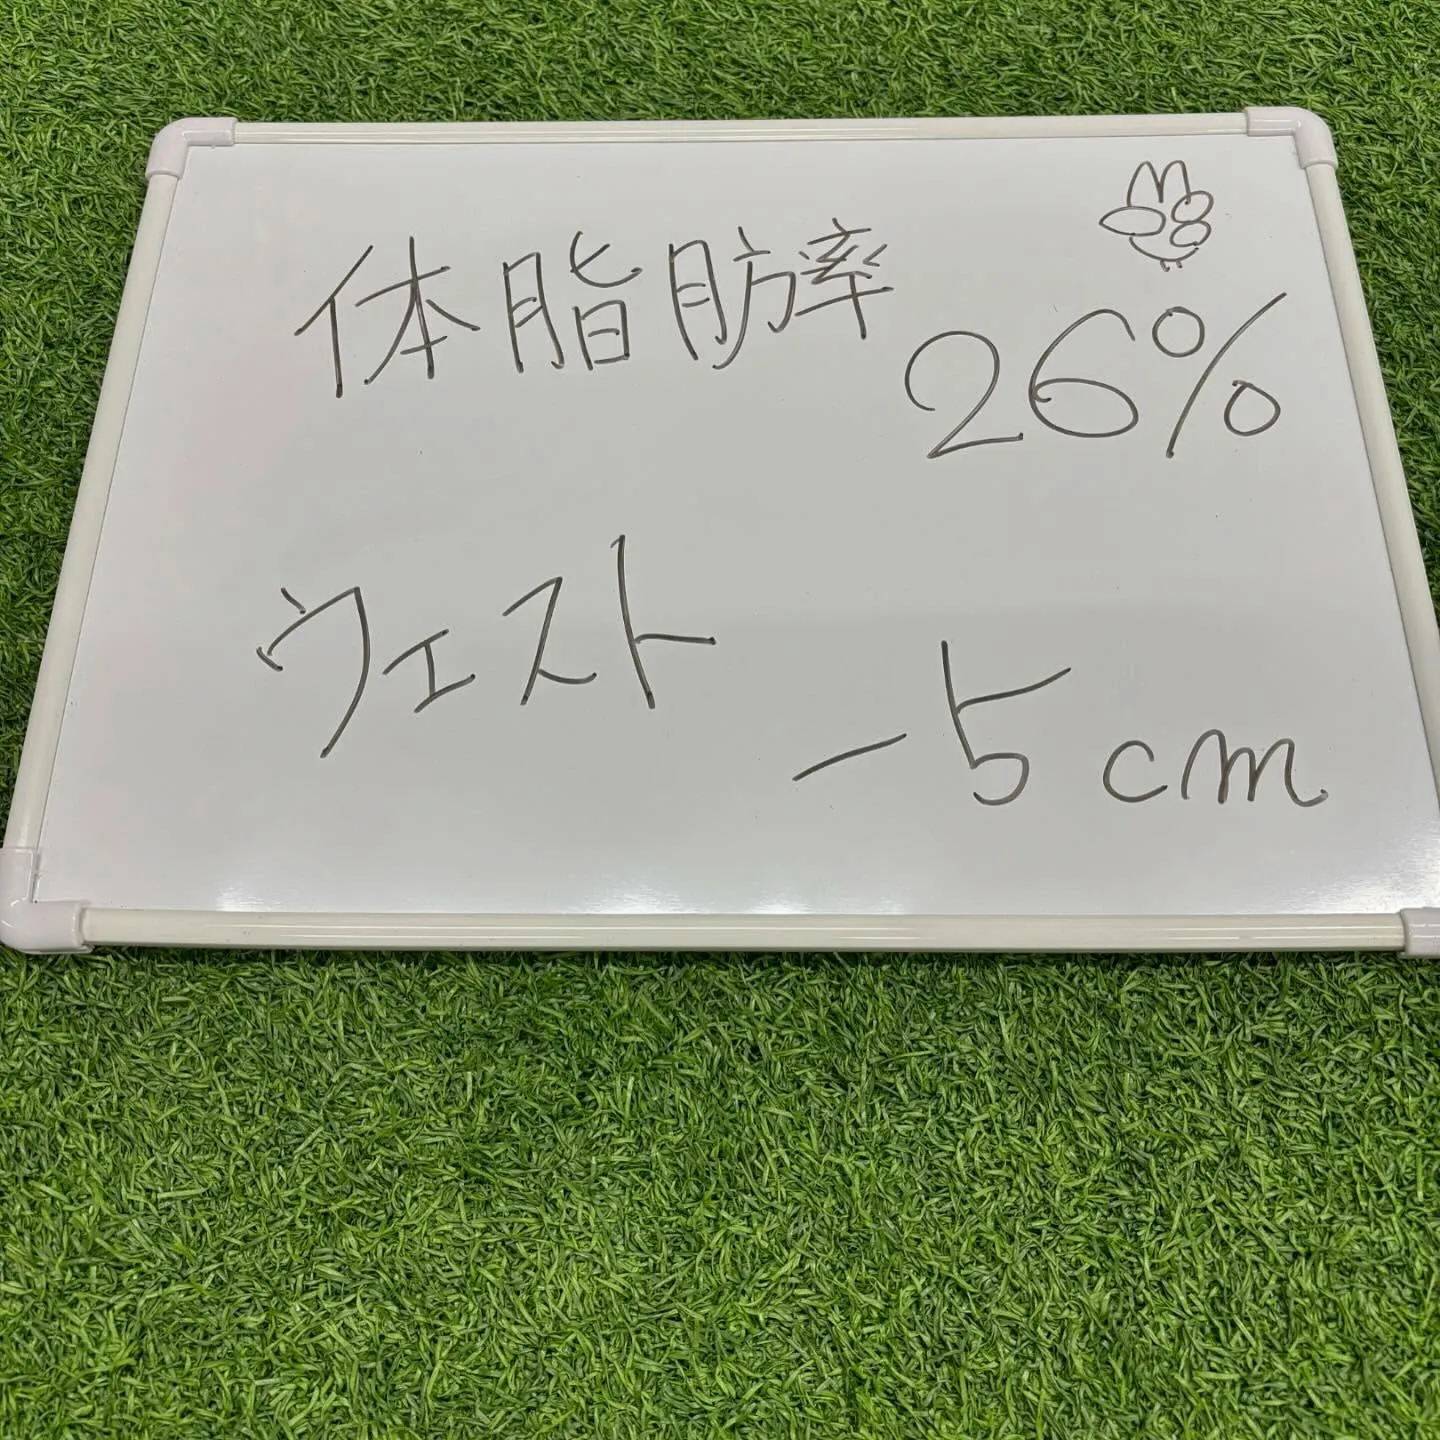 体脂肪率
26%
ウェスト
-5cm